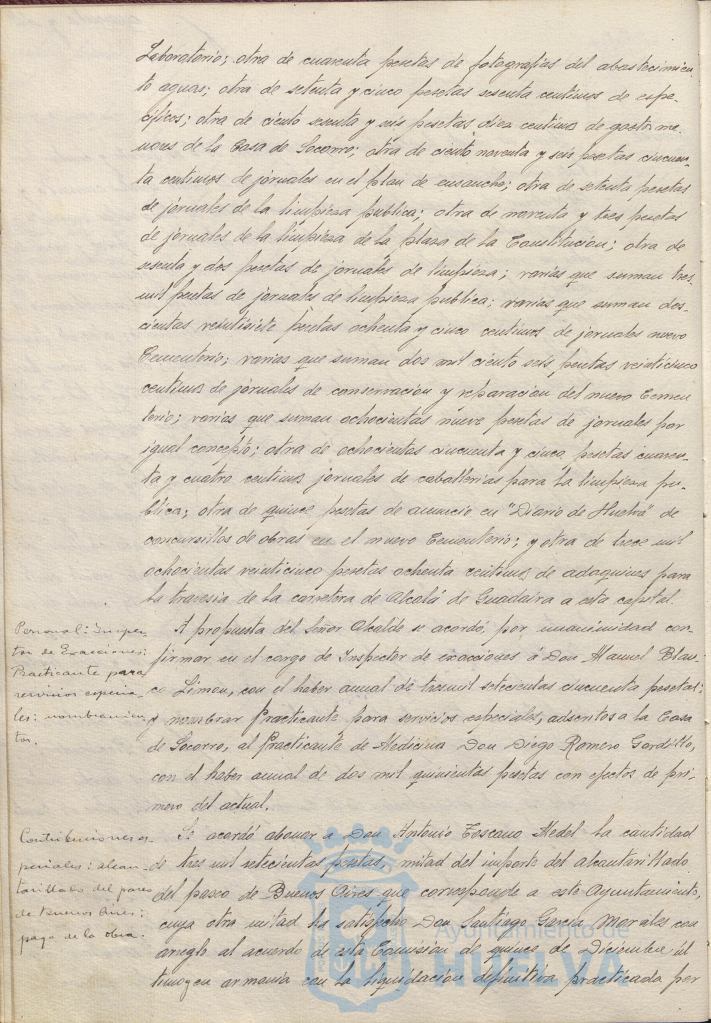 Laboratorio; otra de cuarenta pesetas de fotografias del abastecimien-
to aguas; otra de setenta y cinco pesetas sesenta centimos de espe-
cificos; otra de ciento sesenta y seis pesetas diez centimos de gastos me-
nores de la Casa de Socorro; otra de ciento noventa y seis pesetas cincuen-
ta centimos de jornales en el plan de ensanche; otra de setenta pesetas
de jornales de la limpieza publica; otra de noventa y tres pesetas
de jornales de la limpieza de la plaza de la Constitución; otra de
sesenta y dos pesetas de jornales de limpieza; varias que suman tres
mil pesetas de jornales de limpieza publica; varias que suman dos-
cientas veintisiete pesetas ochenta y cinco centimos de jornales nuevo
Cementerio; varias que suman dos mil ciento seis pesetas veinticinco
centimos de jornales de conservacion y reparacion del nuevo Cemen
terio; varias que suman ochocientas nueve pesetas de jornales por
igual concepto; otra de ochocientas cincuenta y cinco pesetas cuaren-
ta y cuatro centimos jornales de caballerias para la limpieza pu-
blica; otra de quince pesetas de anuncio en "Diario de Huelva" de
concursillos de obras en el nuevo Cementerio; y otra de trece mil
ochocientas veinticinco pesetas ochenta centimos de adoquines para
la travesia de la carretera de Alcalá de Guadaira a esta capital.
Personal: Inspec-
tor de Exacciones:
Practicante para
servicios especia-
les: nombramien-
tos.
A propuesta del Señor Alcalde se acordó, por unanimidad con-
firmar en el cargo de Inspector de exacciones á Don Manuel Blan-
co Limon, con el haber anual de tres mil setecientas cincuenta pesetas;
y nombrar Practicante para servicios especiales, adscritos a la Casa
de Socorro, al Practicante de Medicina Don Diego Romero Gordillo,
con el haber anual de dos mil quinientas pesetas con efectos de pri-
mero del actual.
Contribuciones es
peciales: alcan-
tarillado del paseo
de Buenos Aires:
pago de la obra.
Se acordó abonar a Don Antonio Toscano Medel la cantidad
de tres mil setecientas pesetas, mitad del importe del alcantarillado
del paseo de Buenos Aires que corresponde a este Ayuntamiento,
cuya otra mitad ha satisfecho Don Santiago García Morales con
arreglo al acuerdo de esta Comision de quince de Diciembre úl
timo y en armonia con la liquidacion definitiva practicada por
Ayuntamiento de
HUELVA